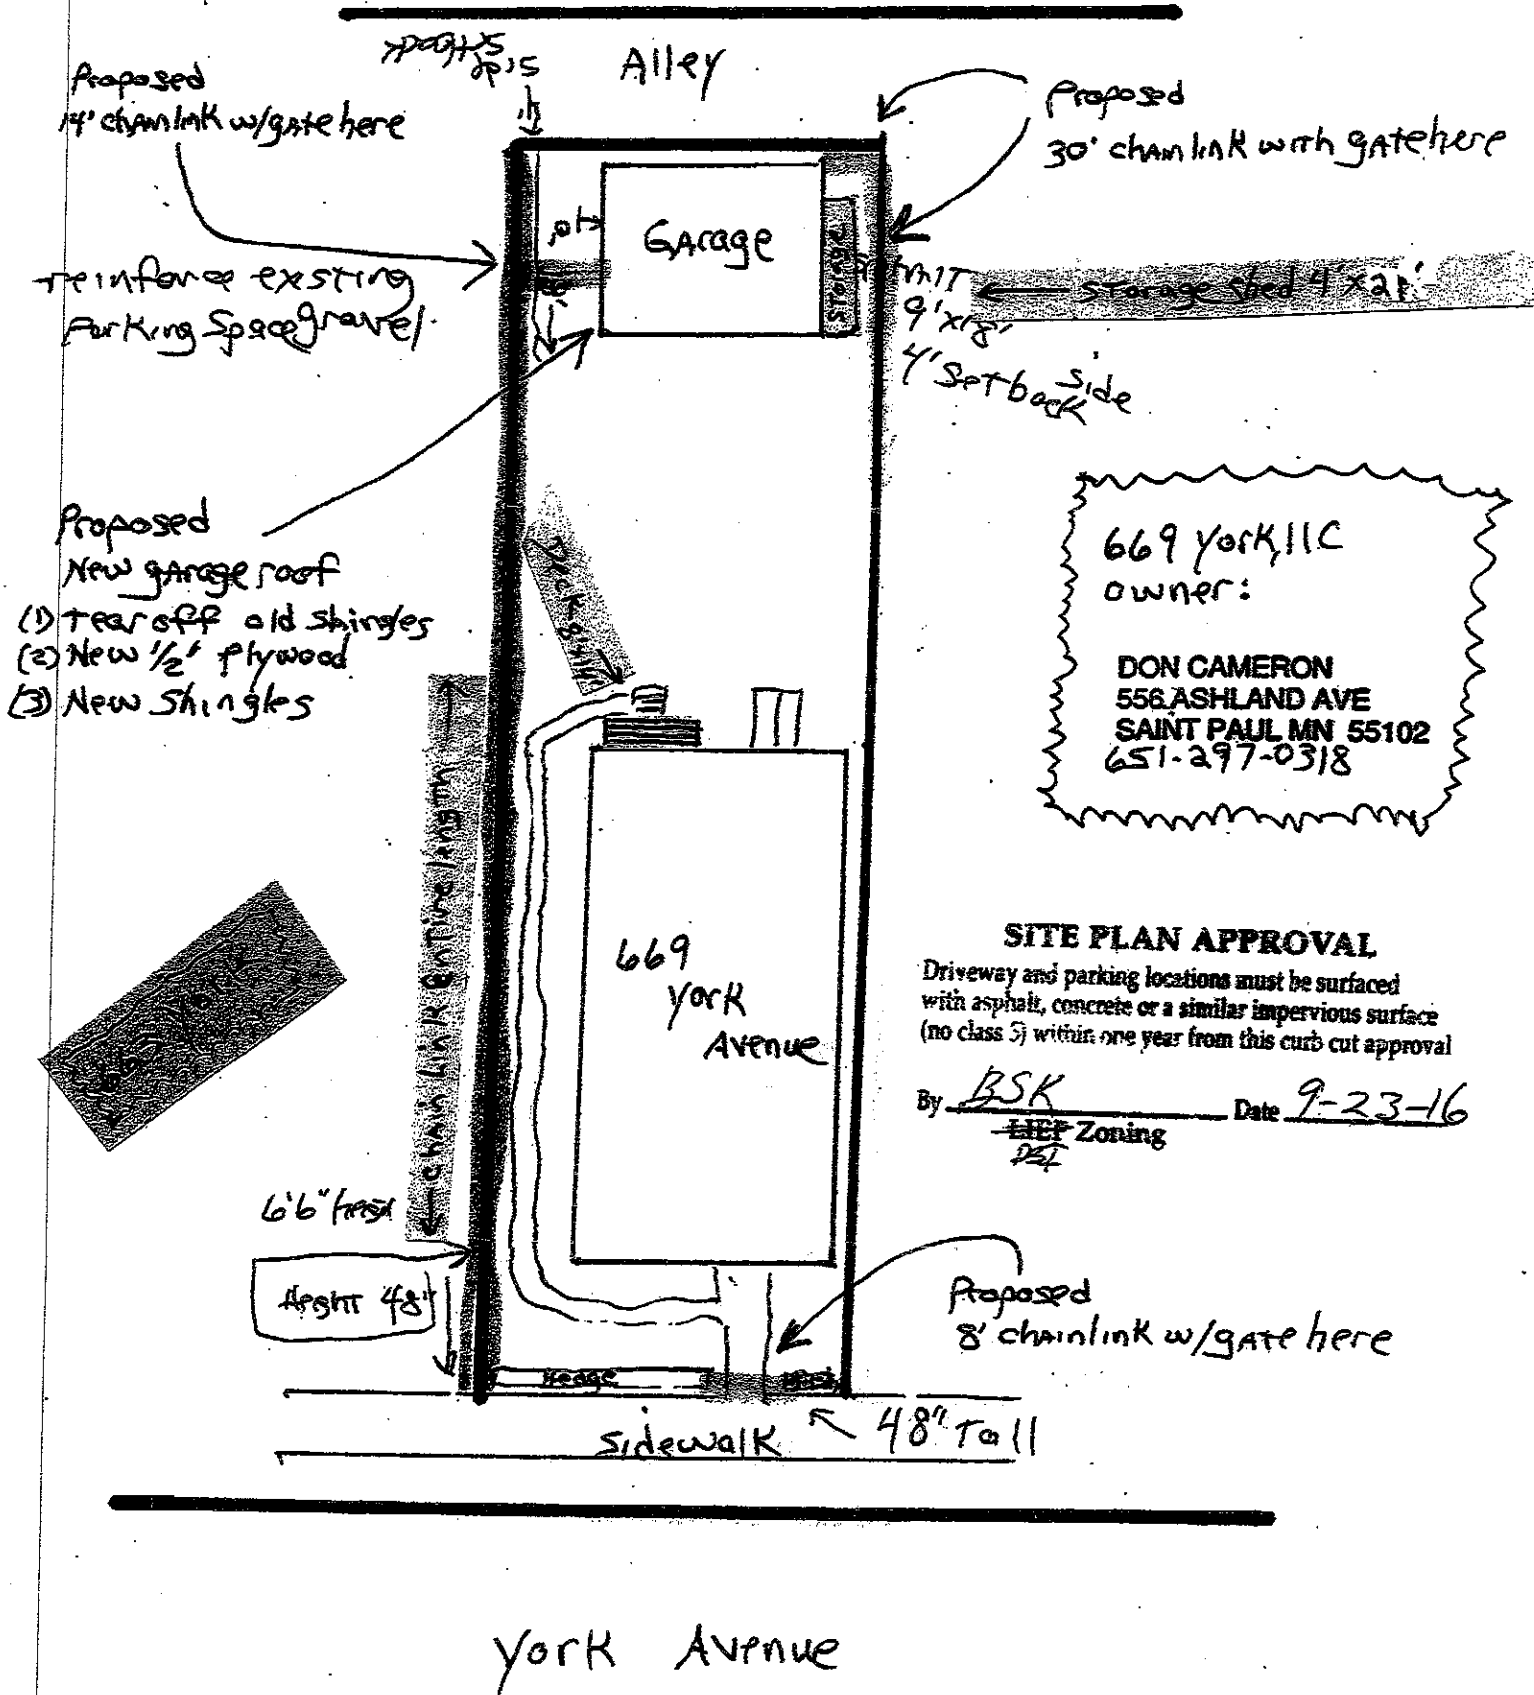 Alley
side
setback
Proposed
14' chainlink w/gate here
Proposed
30' chainlink with gate here
Garage
storage
10'
18'
reinforce existing
Parking Space gravel
← storage shed 4'x21'
9'x18'
4' setback side
Proposed
New garage roof
(1) tear off old shingles
(2) New 1/2' plywood
(3) New Shingles
669 York, llC
owner:
DON CAMERON
556 ASHLAND AVE
SAINT PAUL MN 55102
651-297-0318
chain link entire length
669
York
Avenue
SITE PLAN APPROVAL
Driveway and parking locations must be surfaced
with asphalt, concrete or a similar impervious surface
(no class 5) within one year from this curb cut approval
By BSK Date 9-23-16
LIEP Zoning
DSI
6'6"
Height 48"
Proposed
8' chainlink w/gate here
Hedge
Sidewalk
48" Tall
York Avenue